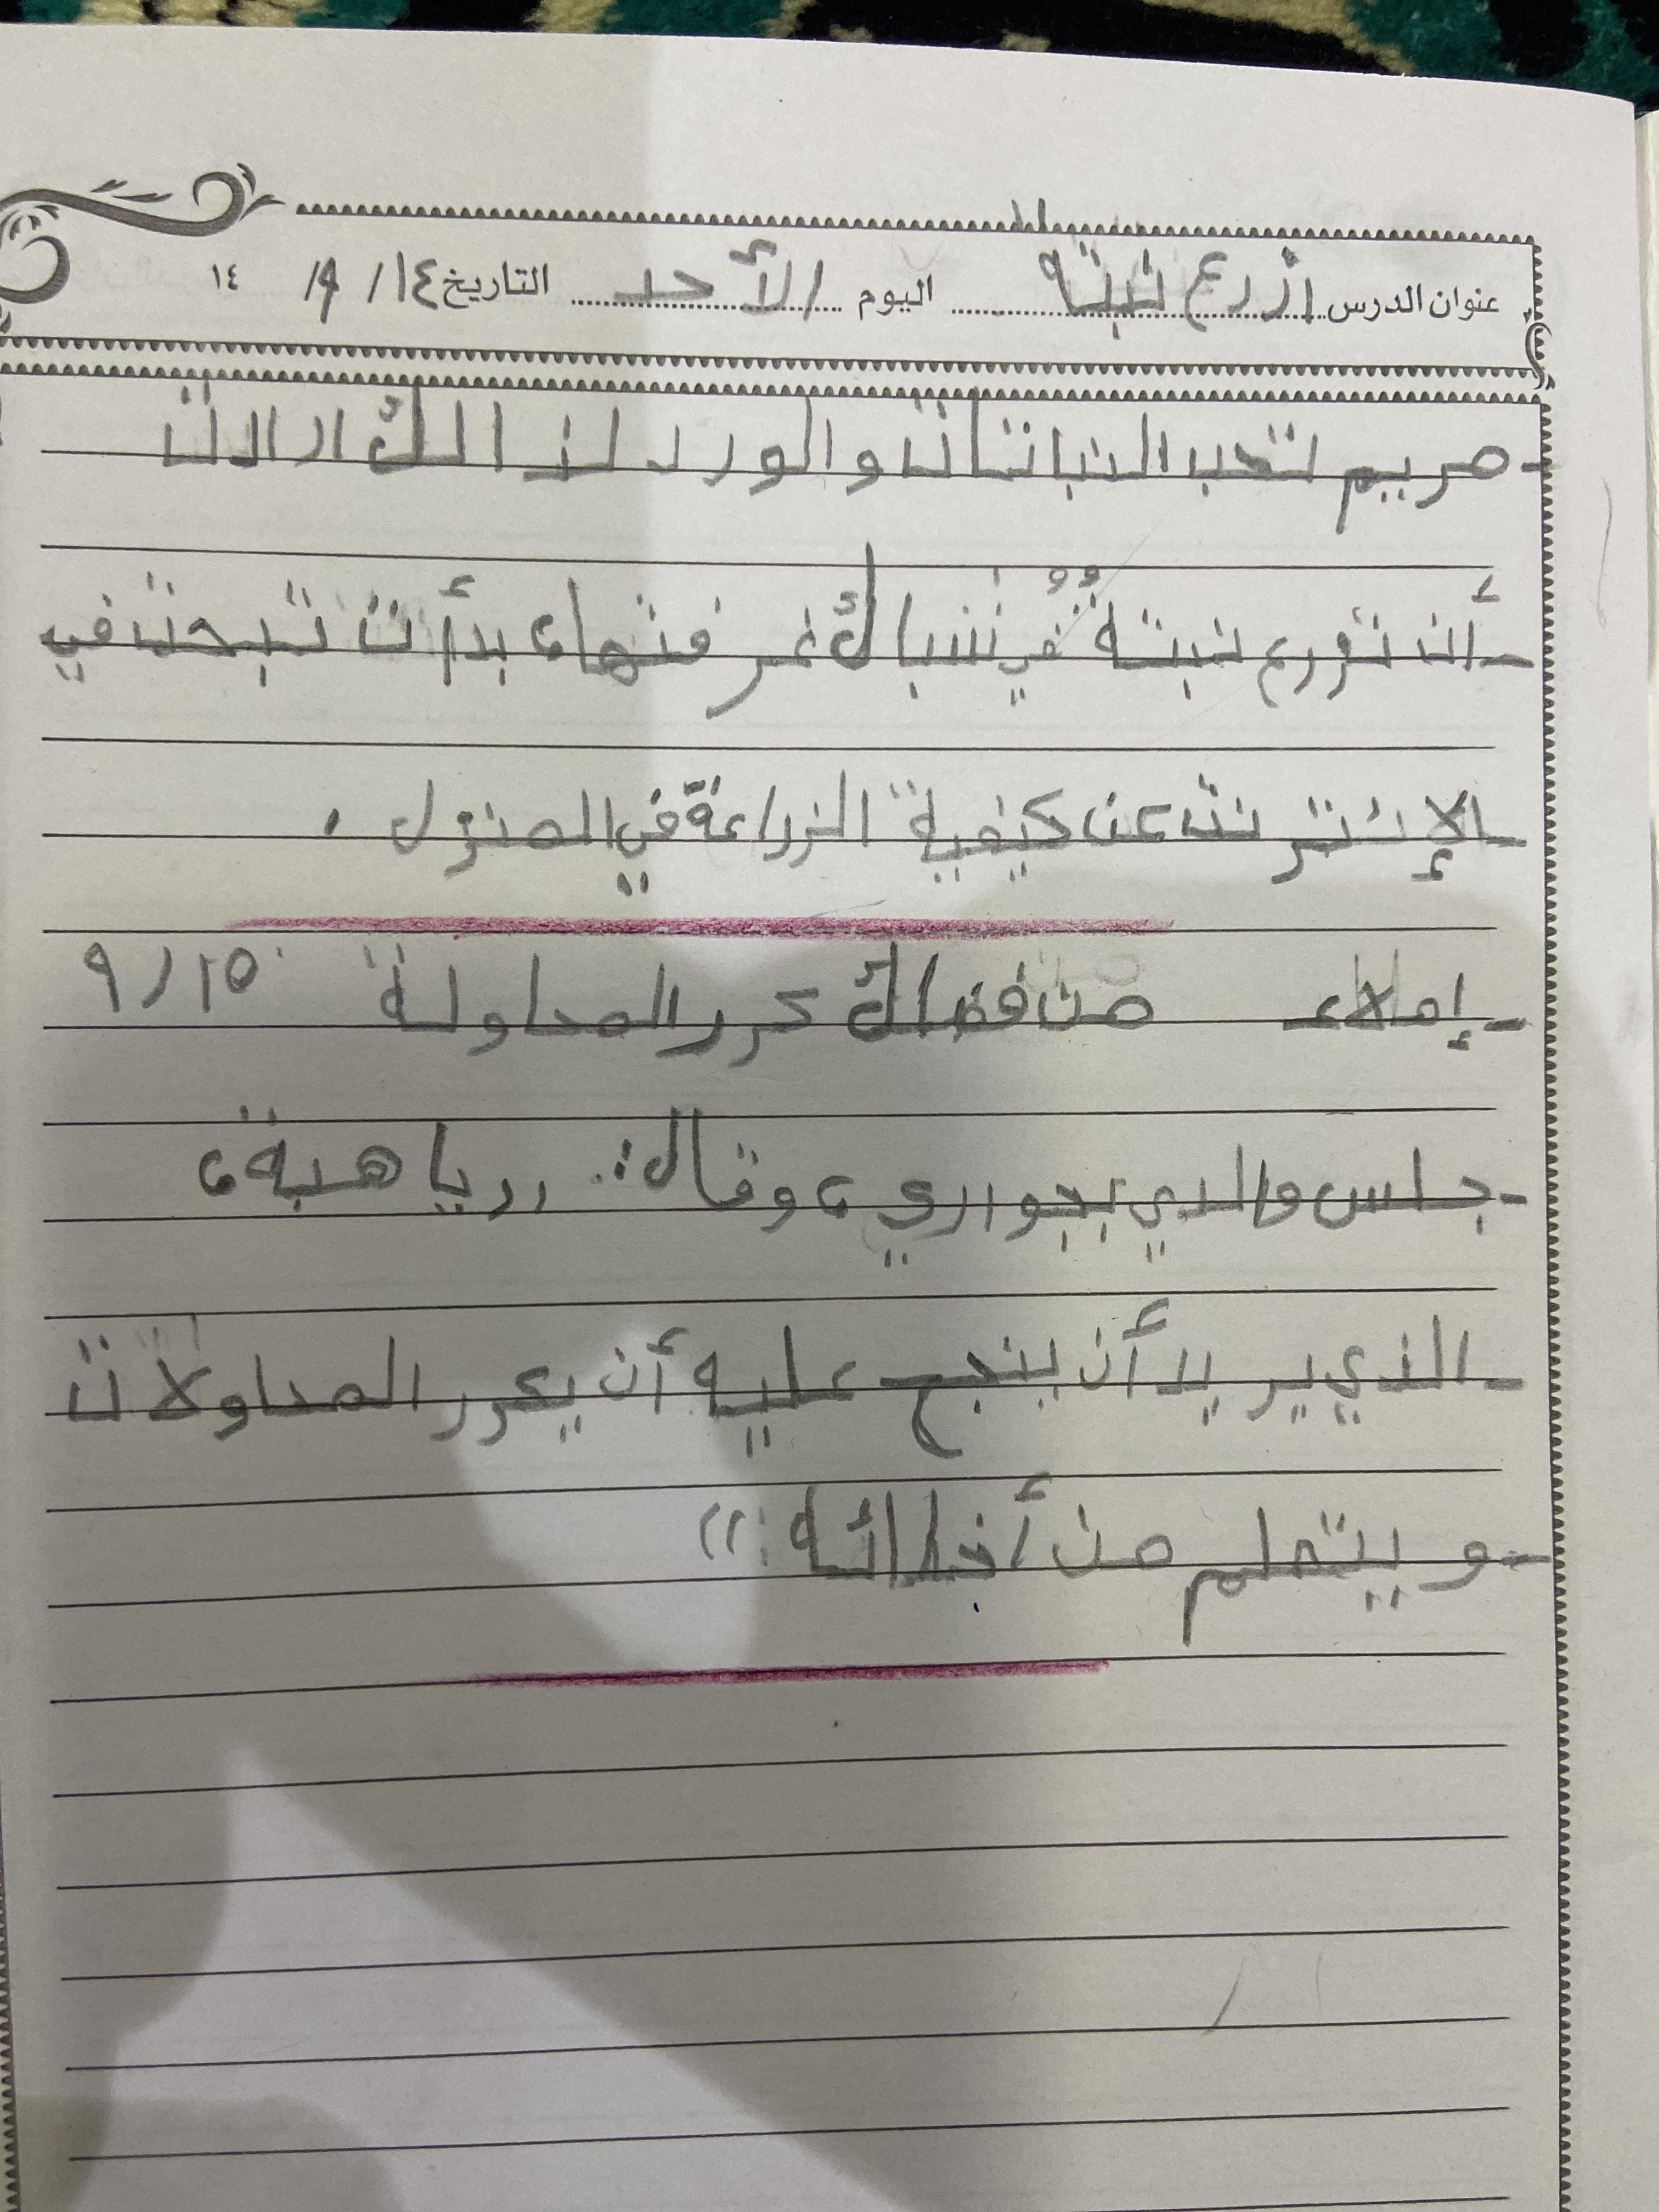 عنوان الدرس ازرع نبتة اليوم الأحد التاريخ ١٤ / ٩ / ١٤
- مريم تحب النباتات والورد لذالك ارادت
- أن تزرع نبتة في شباك غرفتها، بدأت تبحث في
- الإنترنت عن كيفية الزراعة في المنزل .
- إملاء من فضلك كرر المحاولة ٩/١٥
- جلس والدي بجواري، وقال: ((يا هبة،
- الذي يريد أن ينجح عليه أن يكرر المحاولات
- و يتعلم من أخطائه.))